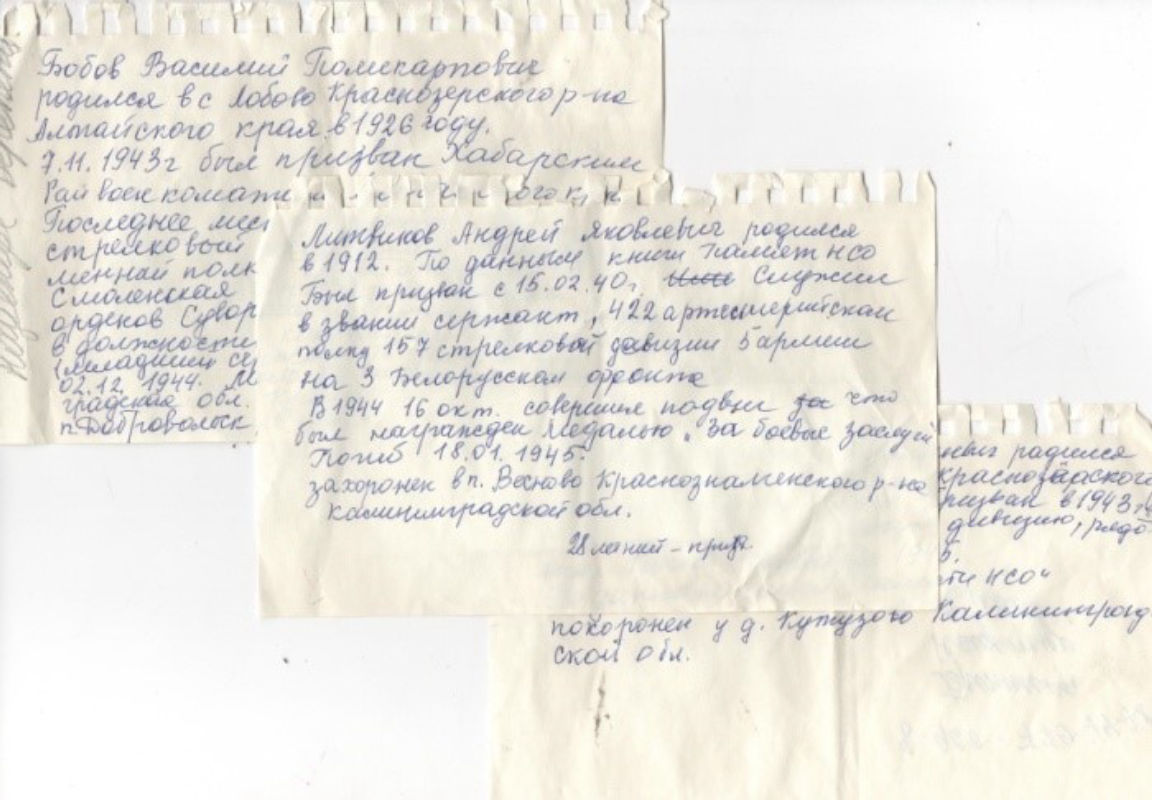 Бобов Василий Поликарпович
родился в с Лобово Краснозерского р-на
Алтайского края в 1926 году.
7.11. 1943г был призван Хабарским
Рай воен комати
Последнее мес
стрелковый
менный полк
Смоленская
орденов Сувор
в должности
(младший се
02.12. 1944. М
градская обл.
п. Добровольск
Литвиков Андрей Яковлевич родился
в 1912. По данным книги Памяти НСО
Был призван с 15.02.40г. Служил
в звании сержант, 422 артиллерийском
полку 157 стрелковой дивизии 5 армии
на 3 Белорусском фронте
В 1944 16 окт. совершил подвиг за что
был награжден медалью „За боевые заслуги
Погиб 18.01. 1945г
захоронен в п. Весново Краснознаменского р-на
калининградской обл.
28 летний -
ович родился
Краснозерского
ризван в 1943г
дивизию, рядо
5.
яти НСО"
похоронен у д. Кутузово Калининград
ской обл.